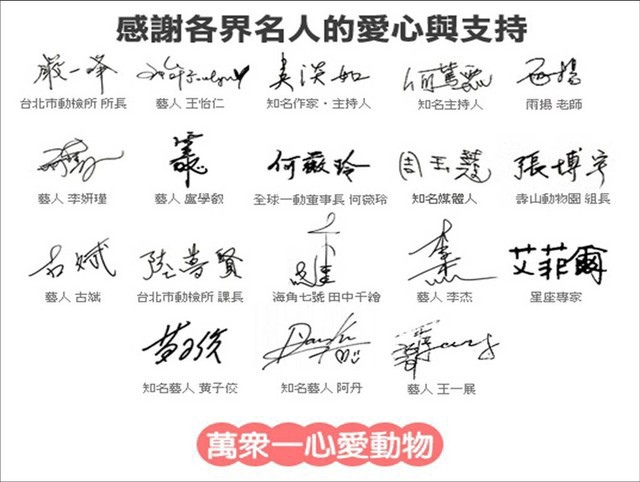 感謝各界名人的愛心與支持
嚴一峯
吳淡如
何篤霖
雨揚
台北市動檢所 所長
藝人 王怡仁
知名作家‧主持人
知名主持人
雨揚 老師
何薇玲
周玉蔻
張博宇
藝人 李妍瑾
藝人 盧學叡
全球一動董事長 何薇玲
知名媒體人
壽山動物園 組長
古斌
陸普賢
李杰
艾菲爾
藝人 古斌
台北市動檢所 課長
海角七號 田中千繪
藝人 李杰
星座專家
黃子佼
知名藝人 黃子佼
知名藝人 阿丹
藝人 王一展
萬眾一心愛動物